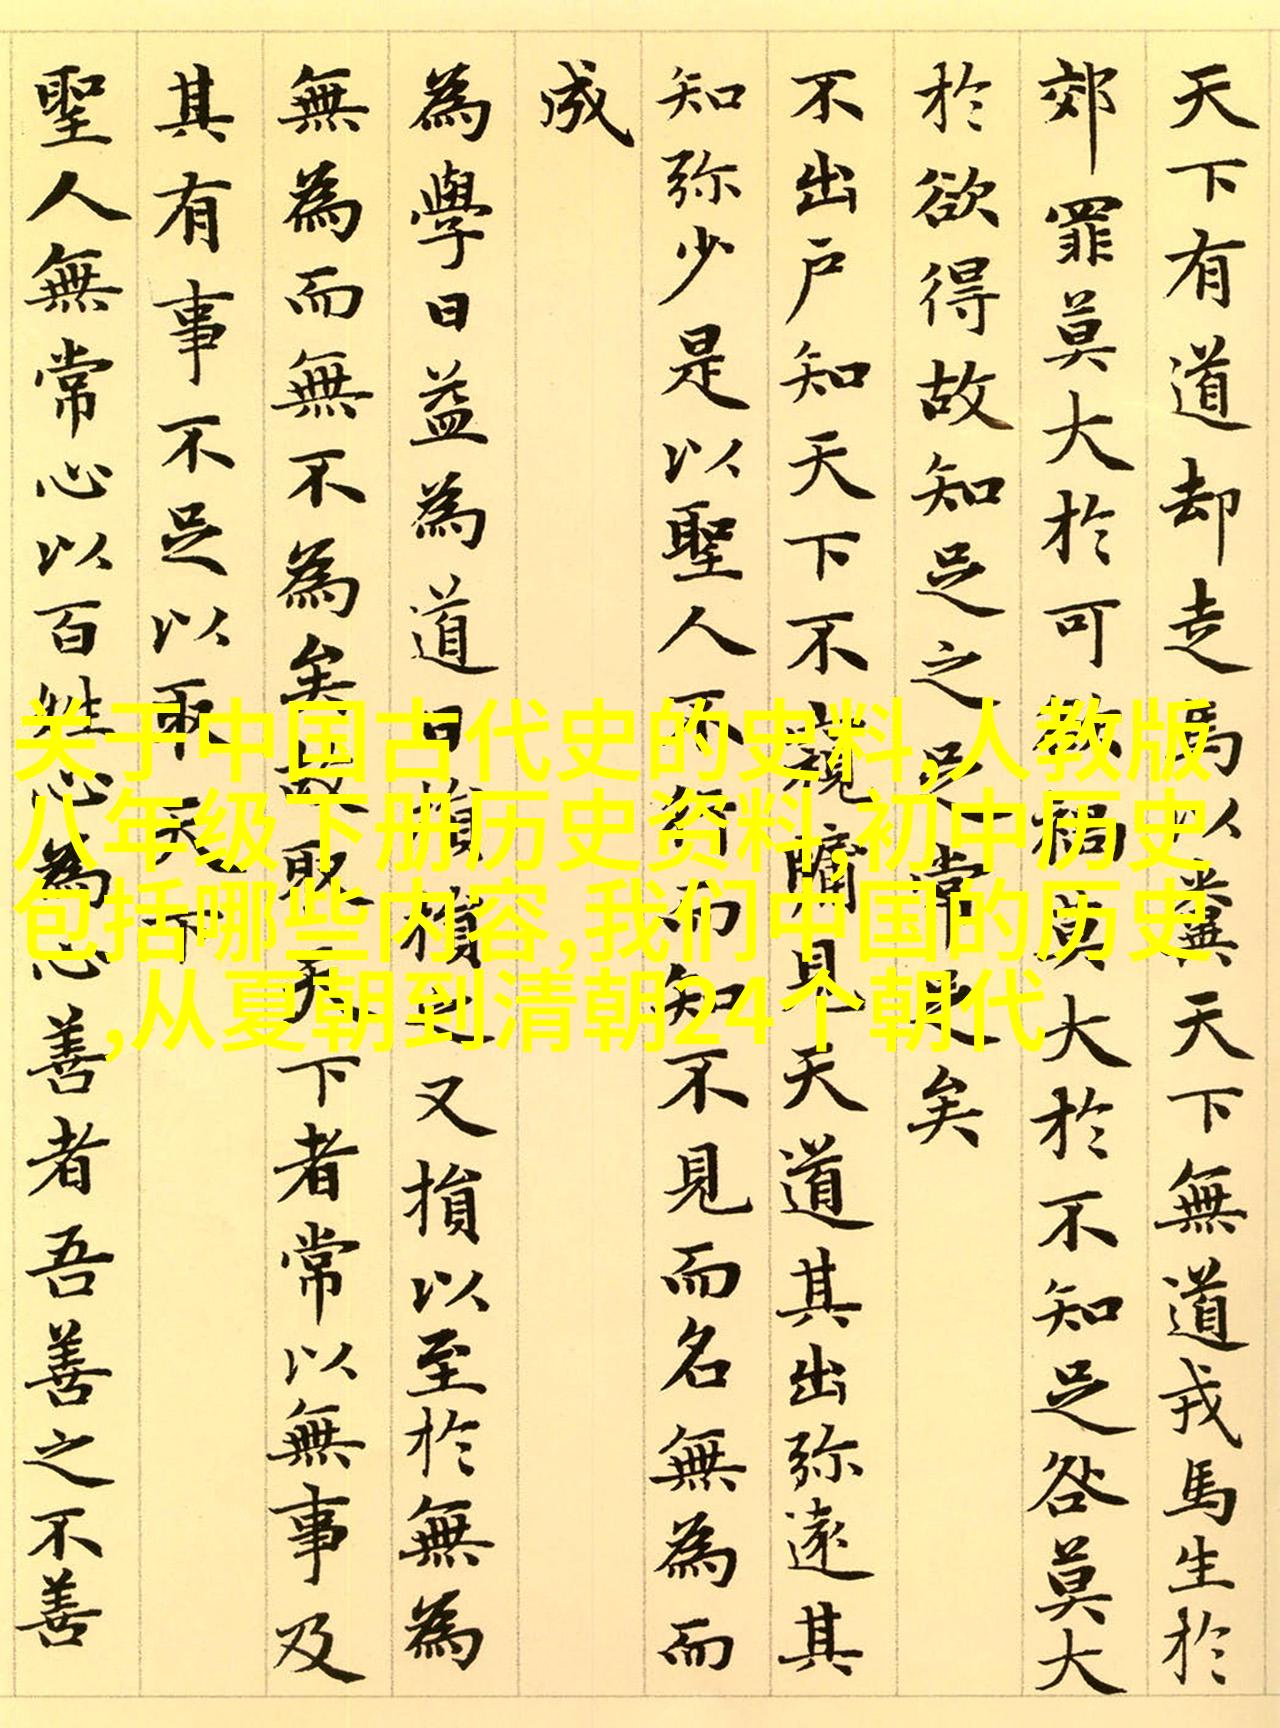 天下有道却走馬以糞天下無道戎馬生於
郊罪莫大於可欲禍莫大於不知足咎莫大
於欲得故知足之足常足矣
不出戶知天下不窺牖見天道其出弥遠其
知弥少是以聖人不行而知不見而名無為而
成
為學日益為道日損損之又損以至於無為
無為而無不為矣故取天下者常以無事及
其有事不足以取天下
聖人無常心以百姓心為心善者吾善之不善
关于中国古代史的史料,人教版
八年级下册历史资料,初中历史
包括哪些内容,我们中国的历史
,从夏朝到清朝24个朝代